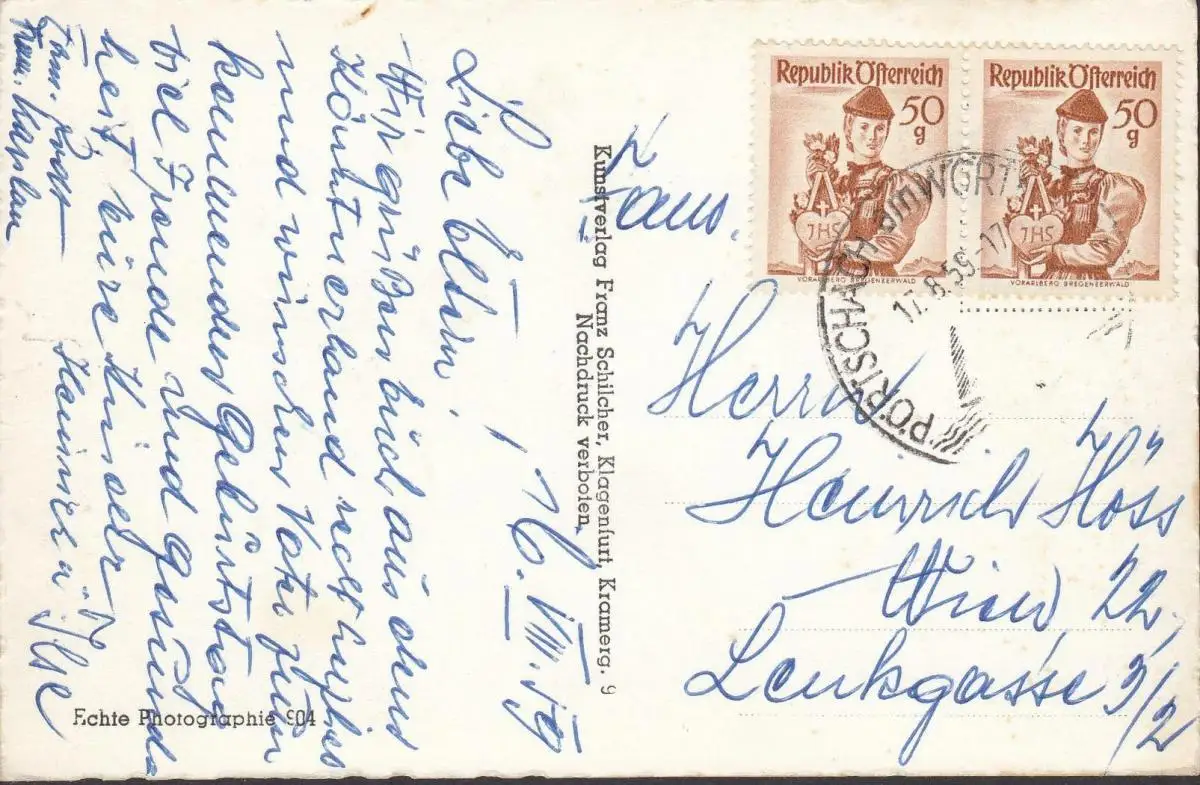 16. VIII. 59
Liebe Eltern!
Wir grüßen Euch aus dem
Kärntnerland recht herzlich
und wünschen Vater zum
kommenden Geburtstag
viel Freude und Gesund-
heit Eure Kinder
Heinrich u. Ilse
Echte Photographie 904
Kunstverlag Franz Schilcher, Klagenfurt, Kramerg. 9
Nachdruck verboten.
Republik Österreich
50
g
JHS
VORARLBERG BREGENZERWALD
Republik Österreich
50
g
JHS
VORARLBERG BREGENZERWALD
PÖRTSCHACH am WÖRT
17. 8. 59 -17
Fam.
Herrn
Heinrich Höss
Wien 22,
Lenkgasse 3/2